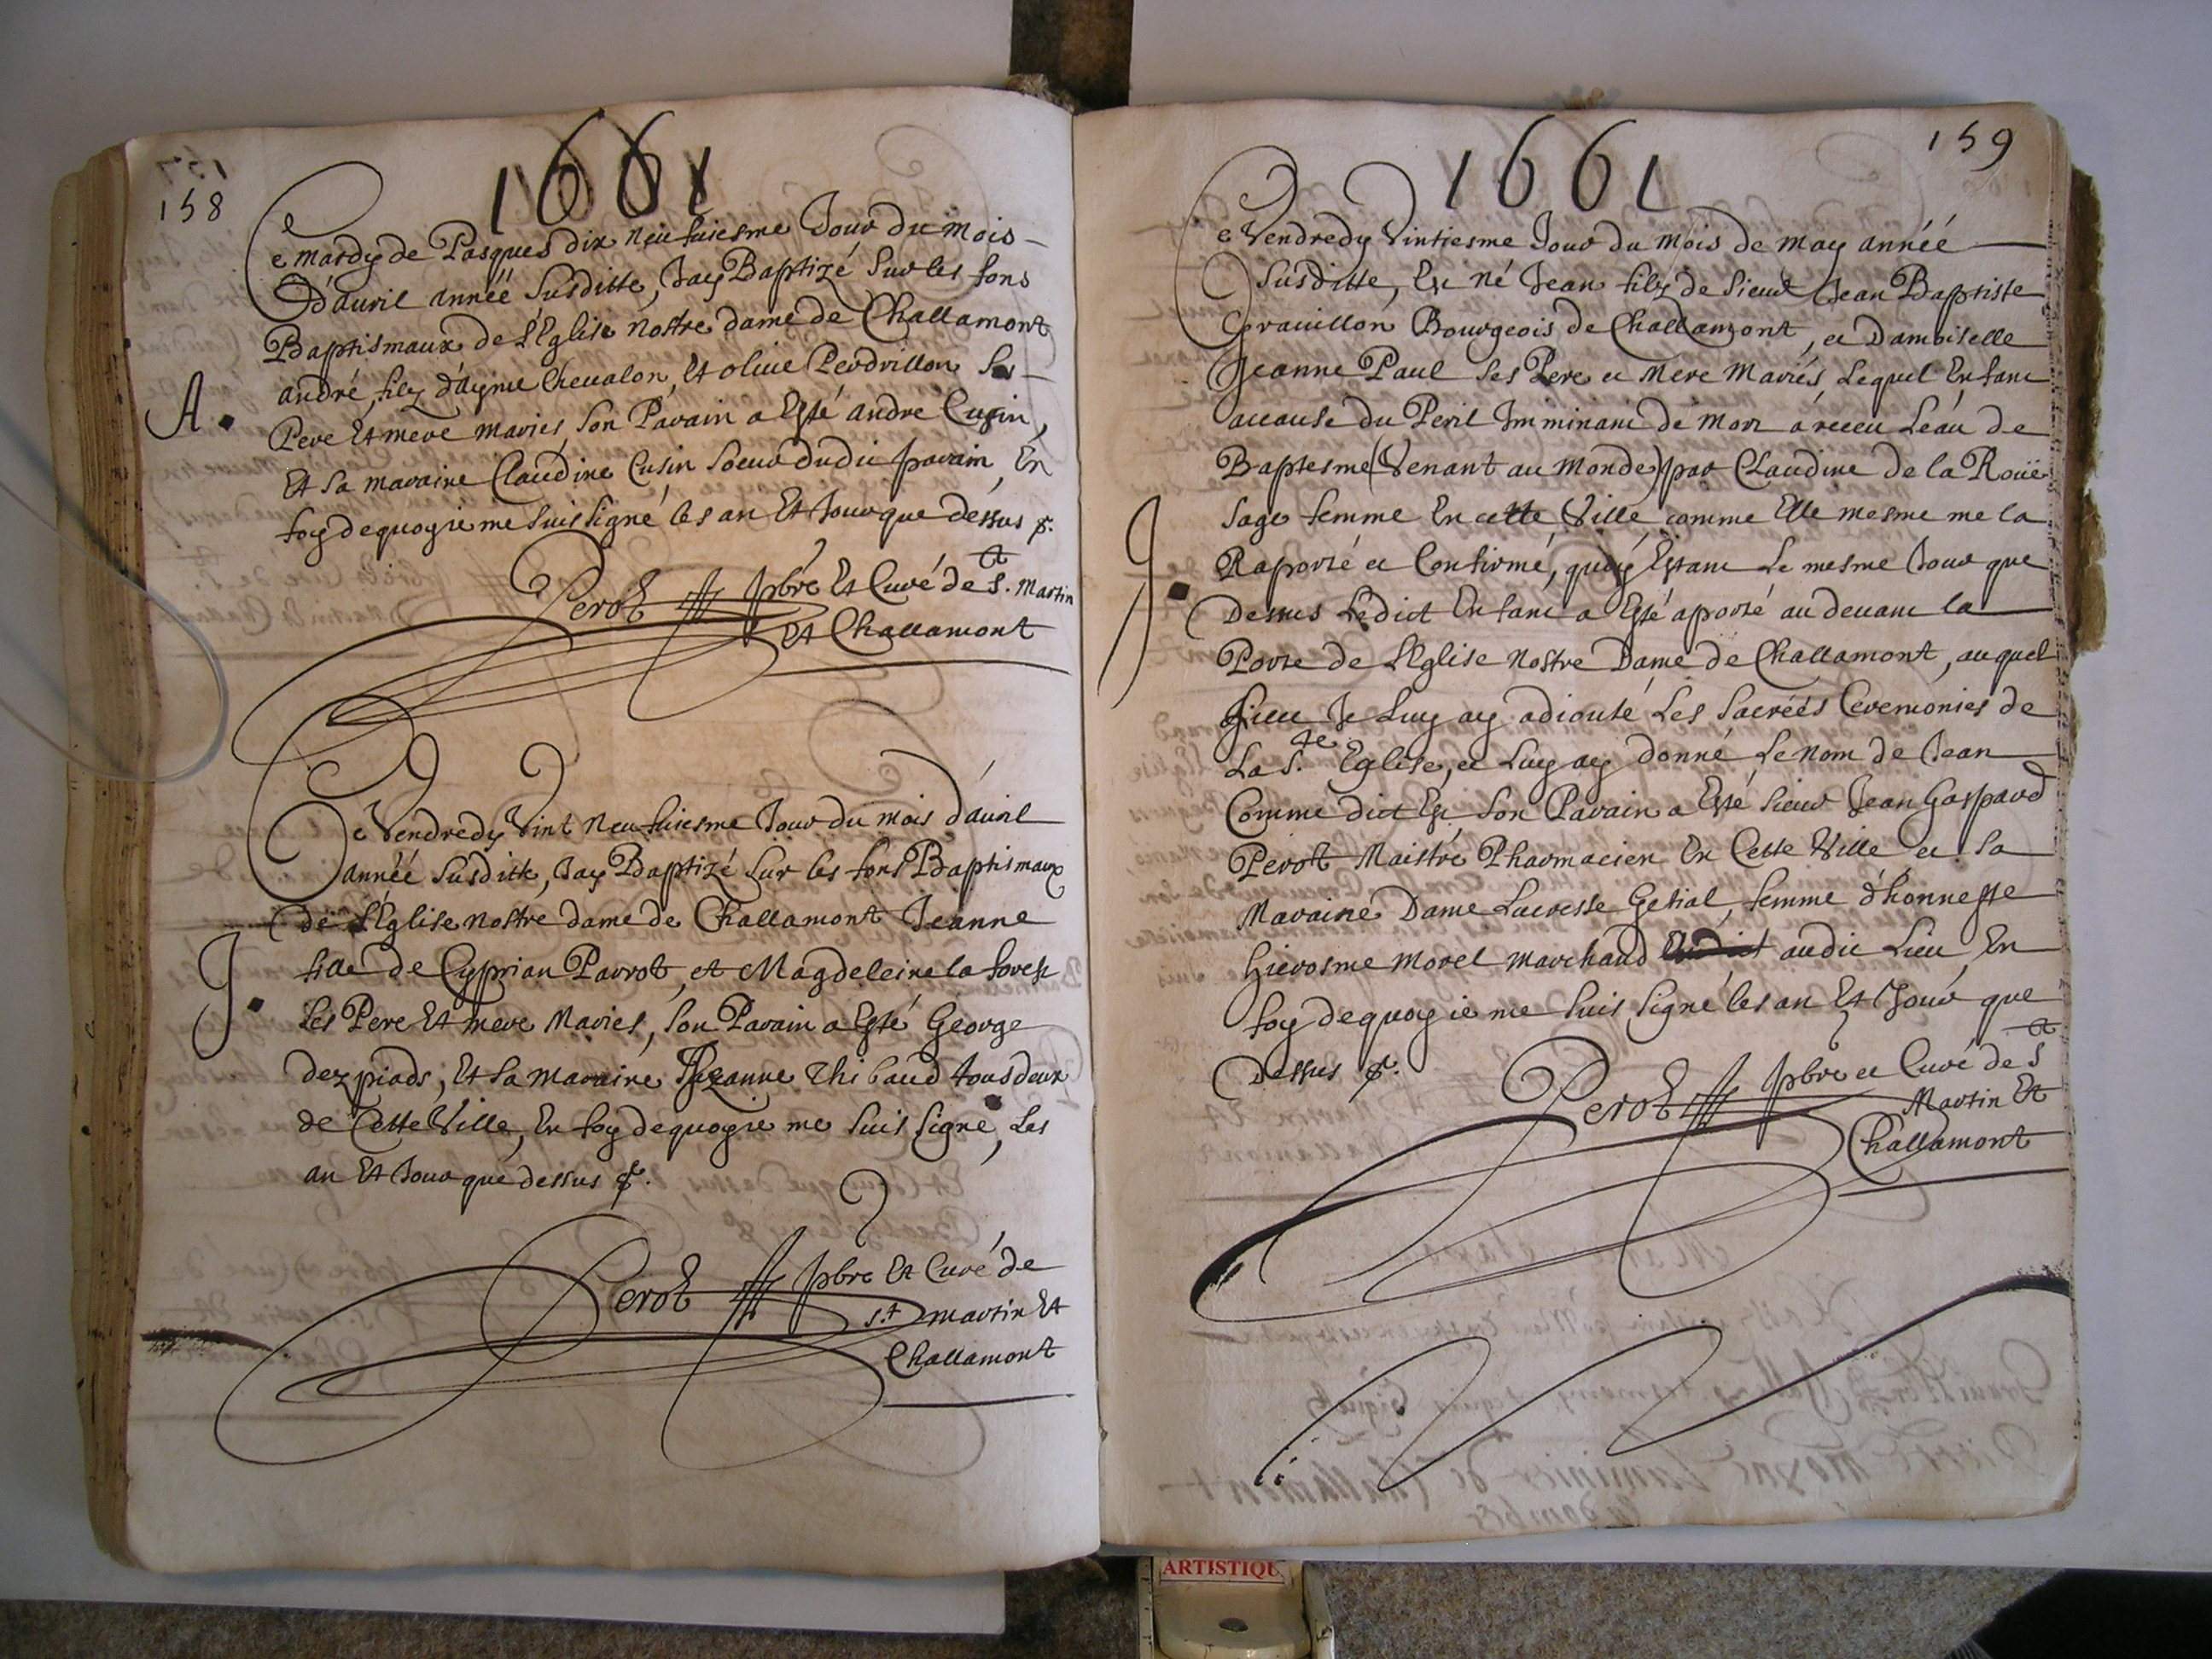 158
1661
Ce mardy de Pasques dix neufuiesme Jour du mois
D'auril année susditte, Jay Baptizé sur les fons
Baptismaux de l'Eglise nostre dame de Challamont
A.
andré, filz d'ayme Cheualon, Et oliue Perdrillon ses
Pere Et mere mariés, son Parain a Esté andré Cusin,
Et sa maraine Claudine Cusin soeur dudit parain, En
foy dequoy ie me suis signé les an Et Jour que dessus &.
Perot pbre Et Curé de S.t Martin
Et Challamont
Ce Vendredy Vint neufuiesme Jour du mois d'auril
année susditte, Jay Baptizé sur les fons Baptismaux
de l'Eglise nostre dame de Challamont Jeanne
J.
fille de Cyprian Parrot, et Magdeleine la forest
ses Pere Et mere Mariés, son Parain a Esté George
dezpiads, Et sa maraine Suzanne Thibaud tous deux
de Cette Ville, En foy dequoy ie me suis signé, Les
an Et Jour que dessus &.
Perot pbre Et Curé de
S.t Martin Et
Challamont
159
1661
Ce Vendredy Vintiesme Jour du mois de may année
susditte, Est né Jean filz de sieur Jean Baptiste
Grauillon Bourgeois de Challamont, et Damoiselle
Jeanne Paul ses Pere et Mere Mariés, Lequel Enfant
accause du Peril Imminant de Mort a receu L'eau de
Baptesme (Venant au Monde) par Claudine de la Roüe
J.
sage femme En cette Ville comme Elle mesme me la
Raporté et Confirmé, quoy Estant Le mesme Jour que
Dessus Ledict Enfant a Esté aporté au deuant la
Porte de l'Eglise Nostre Dame de Challamont, auquel
Lieu Je Luy ay adiouté Les sacréés Ceremonies de
La S.te Eglise, et Luy ay donné Le nom de Jean
Comme dict Est son Parain a Esté sieur Jean Gaspard
Perot Maistre Pharmacien En Cette Ville et sa
Maraine Dame Lucresse Gelial, femme d'honneste
Hierosme Morel Marchand audit Lieu, En
foy dequoy ie me suis signé les an Et Jour que
Dessus &.
Perot pbre et Curé de S.t
Martin Et
Challamont
ARTISTIQU